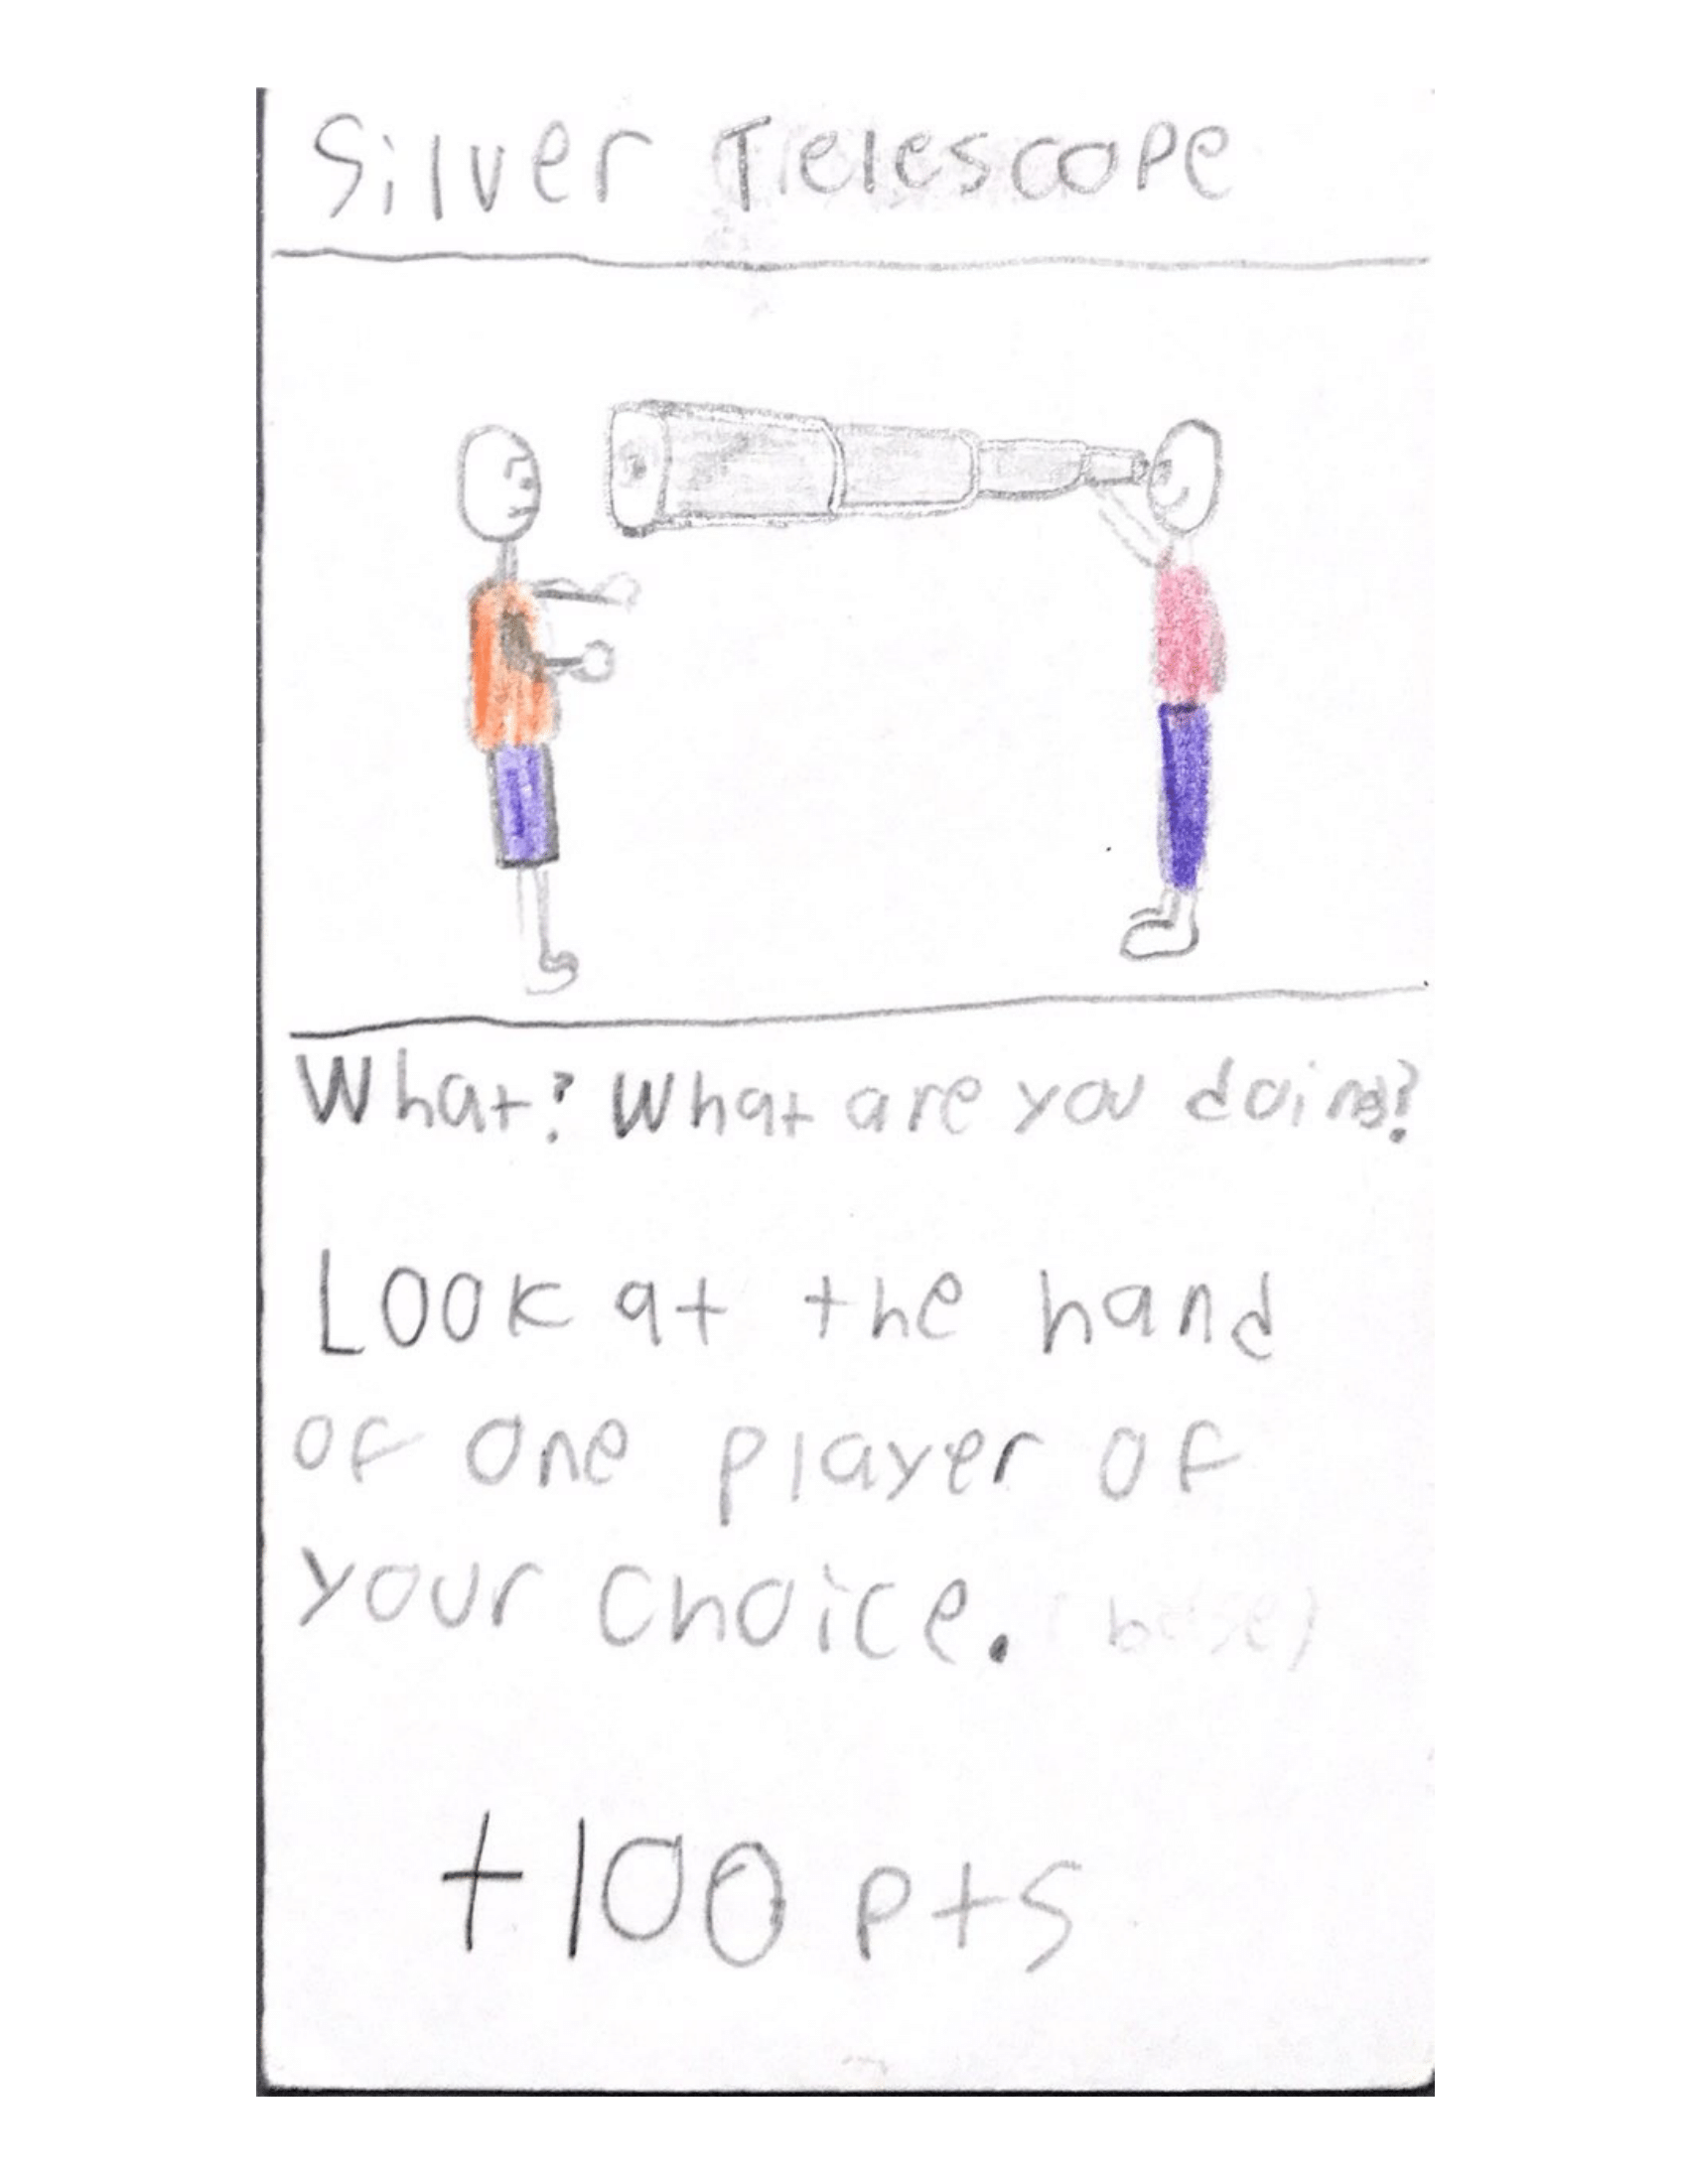 Silver Telescope
What? What are you doing?
Look at the hand
of one player of
your choice. (base)
+100 pts